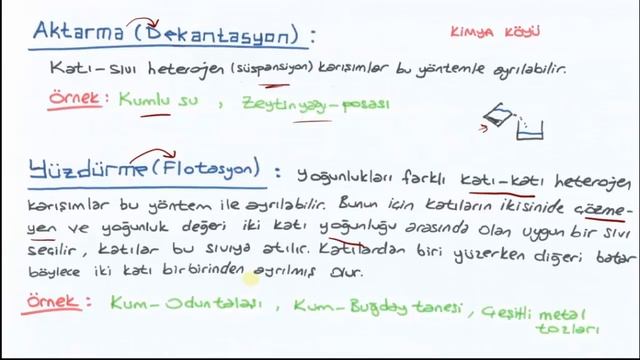 Aktarma (Dekantasyon) :
KİMYA KÖYÜ
Katı-sıvı heterojen (süspansiyon) karışımlar bu yöntemle ayrılabilir.
Örnek : Kumlu su , Zeytinyağ-posası
Yüzdürme (Flotasyon) : Yoğunlukları farklı katı-katı heterojen
karışımlar bu yöntem ile ayrılabilir. Bunun için katıların ikisinide çözme-
yen ve yoğunluk değeri iki katı yoğunluğu arasında olan uygun bir sıvı
seçilir , katılar bu sıvıya atılır. Katılardan biri yüzerken diğeri batar
böylece iki katı birbirinden ayrılmış olur.
Örnek : Kum-Odun talaşı , Kum-Buğday tanesi , Çeşitli metal
tozları